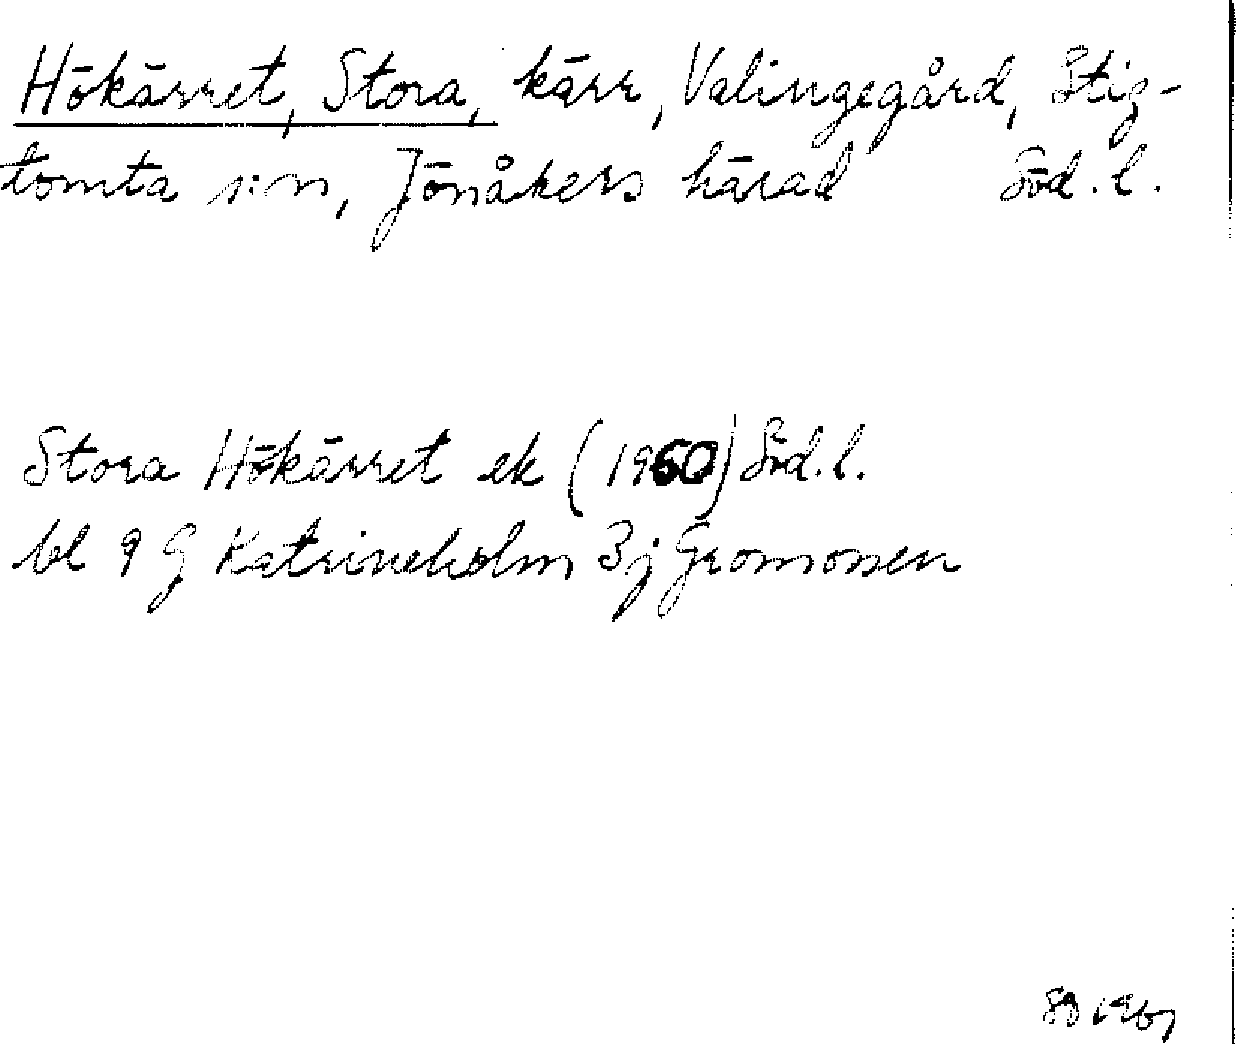 Hökärret, Stora, kärr, Valingegård, Stig-
tomta s:n, Jönåkers härad Söd. l.
Stora Hökärret ek (1960) Söd. l.
bl 9 G Katrineholm 3 j Gromossen
1967